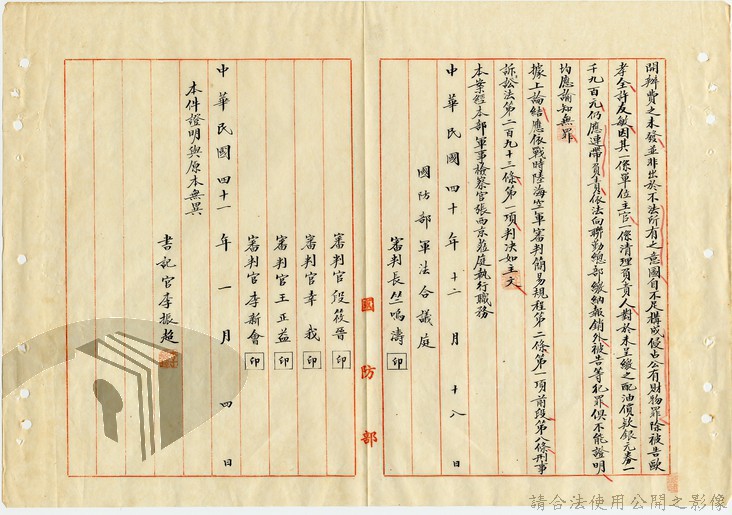 開辦費之未發並非出於不法所有之意圖自不足構成侵占公有財物罪除被告歐
孝全許友敏因其一係單位主官一係清理負責人對於未呈繳之配油價款銀元券一
千九百元仍應連帶負責依法向聯勤總部繳納報銷外被告等犯罪俱不能證明
均應諭知無罪
據上論結應依戰時陸海空軍審判簡易規程第二條第一項前段第八條刑事
訴訟法第二百九十三條第一項判決如主文
本案經本部軍事檢察官張西京蒞庭執行職務
中華民國四十年十二月十八日
國防部軍法合議庭
審判長 鳴濤 印
國防部
審判官 段筱晉 印
審判官 幸我 印
審判官 王正益 印
審判官 李新會 印
中華民國四十一年一月四日
本件證明與原本無異
書記官 李振超
請合法使用公開之影像